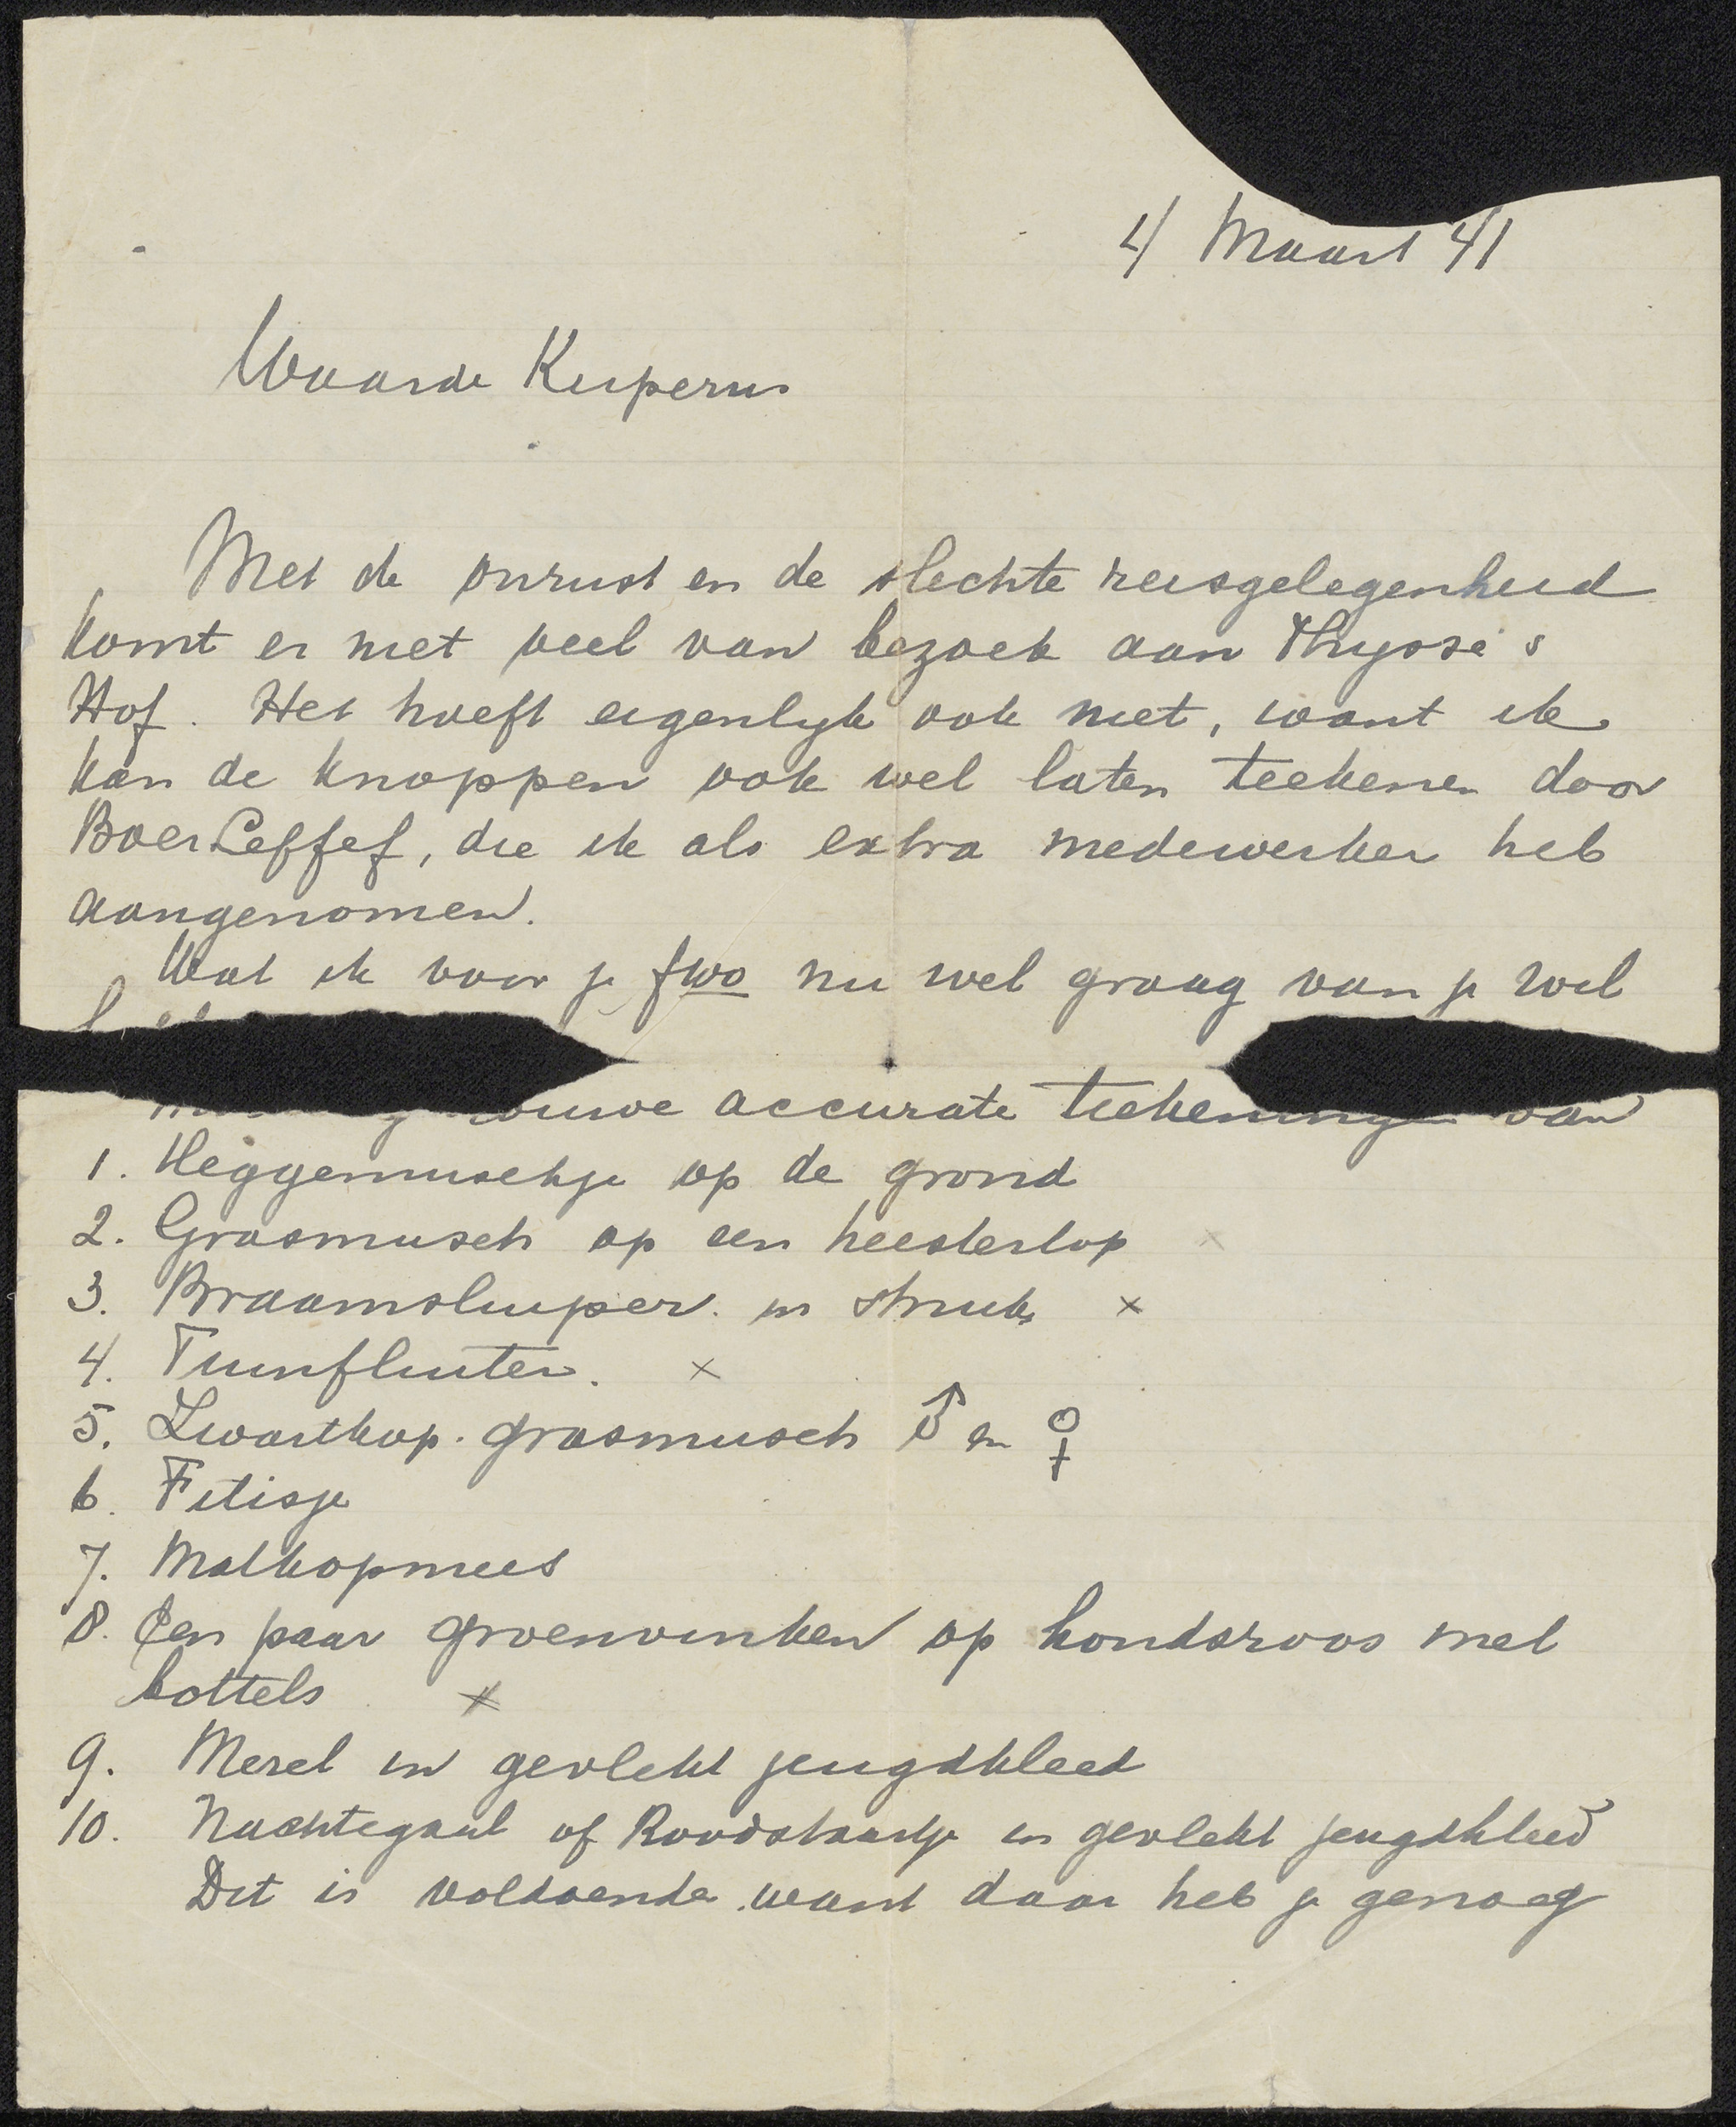 4 Maart 41
Waarde Kuperus
Met de onrust en de slechte reisgelegenheid
komt er niet veel van bezoek aan Thysse's
Hof. Het hoeft eigenlyk ook niet, want ik
kan de knoppen ook wel laten teekenen door
Boer Leffef, die ik als extra medewerker heb
aangenomen.
Wat ik voor je fwo nu wel graag van je wil
accurate teekeningen van
1. Heggemuschje op de grond
2. Grasmusch op een heestertop x
3. Braamsluiper in struik x
4. Tuinfluiter. x
5. Zwartkop. grasmusch ♂ en ♀
6. Fitisje
7. Matkopmees
8. Een paar groenvinken op hondsroos met
bottels x
9. Merel in gevlekt jeugdkleed
10. Nachtegaal of Roodstaartje in gevlekt jeugdkleed
Dit is voldoende want daar heb je genoeg